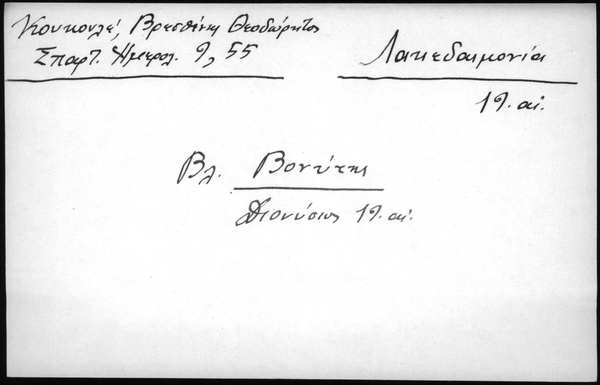 Κουκουλέ, Βρεσθένης Θεοδώρητος
Σπαρτ. Ημερολ. 9, 55
Λακεδαιμονία
19. αἰ.
Βλ. Βονύτης
Διονύσιος 19. αἰ.